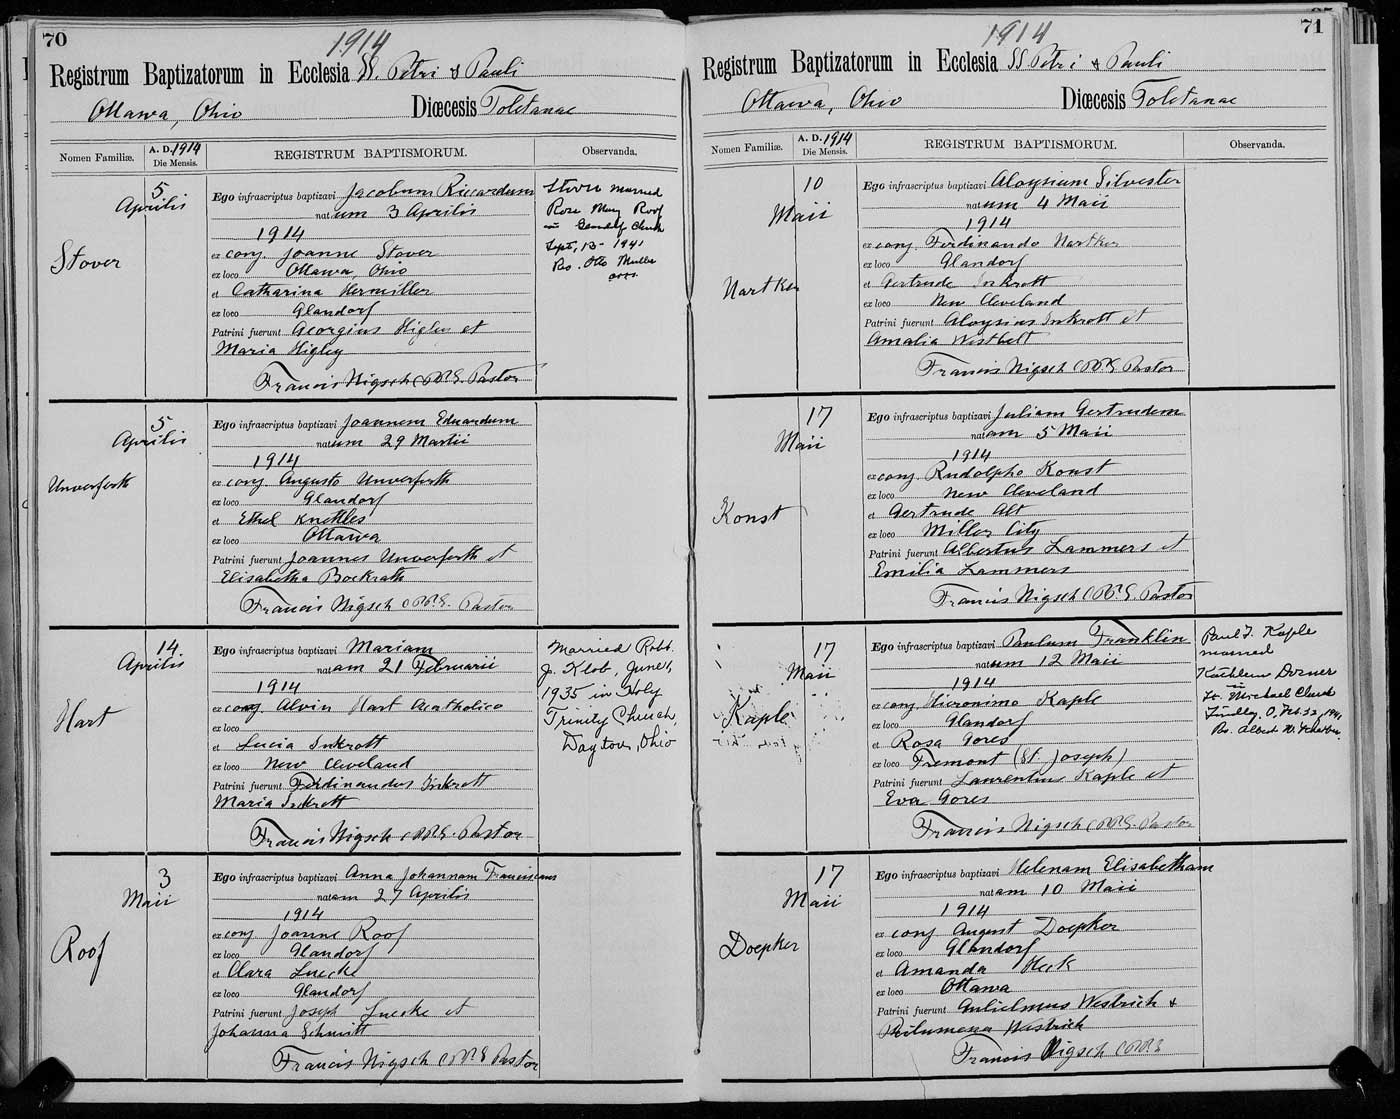 70
1914
Registrum Baptizatorum in Ecclesia SS. Petri & Pauli
Ottawa, Ohio Diœcesis Toletanae
Nomen Familiæ. A. D. 1914 Die Mensis. REGISTRUM BAPTISMORUM. Observanda.
5
Aprilis
Stover
Ego infrascriptus baptizavi Jacobum Riccardum
natum 3 Aprilis
1914
ex conj. Joanne Stover
ex loco Ottawa, Ohio
et Catharina Hermiller
ex loco Glandorf
Patrini fuerunt Georgius Higley et
Maria Higley
Francis Nigsch C.PP.S. Pastor
Stover married
Rose Mary Roof
in Glandorf Church
Sept, 13- 1941
Rev. Otto Muller
5
Aprilis
Unverferth
Ego infrascriptus baptizavi Joannem Eduardum
natum 29 Martii
1914
ex conj. Augusto Unverferth
ex loco Glandorf
et Ethel Knettles
ex loco Ottawa
Patrini fuerunt Joannes Unverferth et
Elisabetha Bockrath
Francis Nigsch C.PP.S. Pastor
14
Aprilis
Hart
Ego infrascriptus baptizavi Mariam
natam 21 Februarii
1914
ex conj. Alvin Hart Acatholico
ex loco
et Lucia Inkrott
ex loco New Cleveland
Patrini fuerunt Ferdinandus Inkrott
Maria Inkrott
Francis Nigsch C.PP.S. Pastor
Married Robt.
J. Klob, June 1,
1935 in Holy
Trinity Church,
Dayton, Ohio
3
Maii
Roof
Ego infrascriptus baptizavi Anna Johannam Franciscam
natam 27 Aprilis
1914
ex conj Joanne Roof
ex loco Glandorf
et Clara Luecke
ex loco Glandorf
Patrini fuerunt Joseph Luecke et
Johanna Schmitt
Francis Nigsch C.PP.S Pastor
71
1914
Registrum Baptizatorum in Ecclesia SS Petri & Pauli
Ottawa, Ohio Diœcesis Toletanae
Nomen Familiæ. A. D. 1914 Die Mensis. REGISTRUM BAPTISMORUM. Observanda.
10
Maii
Nartker
Ego infrascriptus baptizavi Aloysium Silvester
natum 4 Maii
1914
ex conj. Ferdinando Nartker
ex loco Glandorf
et Gertrude Inkrott
ex loco New Cleveland
Patrini fuerunt Aloysius Inkrott et
Amalia Westbelt
Francis Nigsch C.PP.S Pastor
17
Maii
Konst
Ego infrascriptus baptizavi Juliam Gertrudem
natam 5 Maii
1914
ex conj. Rudolpho Konst
ex loco New Cleveland
et Gertrude Alt
ex loco Miller City
Patrini fuerunt Albertus Lammers et
Emilia Lammers
Francis Nigsch C.PP.S. Pastor
17
Maii
Kaple
Ego infrascriptus baptizavi Paulum Franklin
natum 12 Maii
1914
ex conj Hieronimo Kaple
ex loco Glandorf
et Rosa Gores
ex loco Fremont (St. Joseph)
Patrini fuerunt Laurentius Kaple et
Eva Gores
Francis Nigsch C.PP.S Pastor
Paul F. Kaple
married
Kathleen Dorner
in
St. Michael Church
Findlay, O. Feb. 22, 1941
Rev. Albert W.
17
Maii
Doepker
Ego infrascriptus baptizavi Helenam Elisabetham
natam 10 Maii
1914
ex conj August Doepker
ex loco Glandorf
et Amanda Heck
ex loco Ottawa
Patrini fuerunt Gulielmus Westrich &
Philumena Westrich
Francis Nigsch C.PP.S